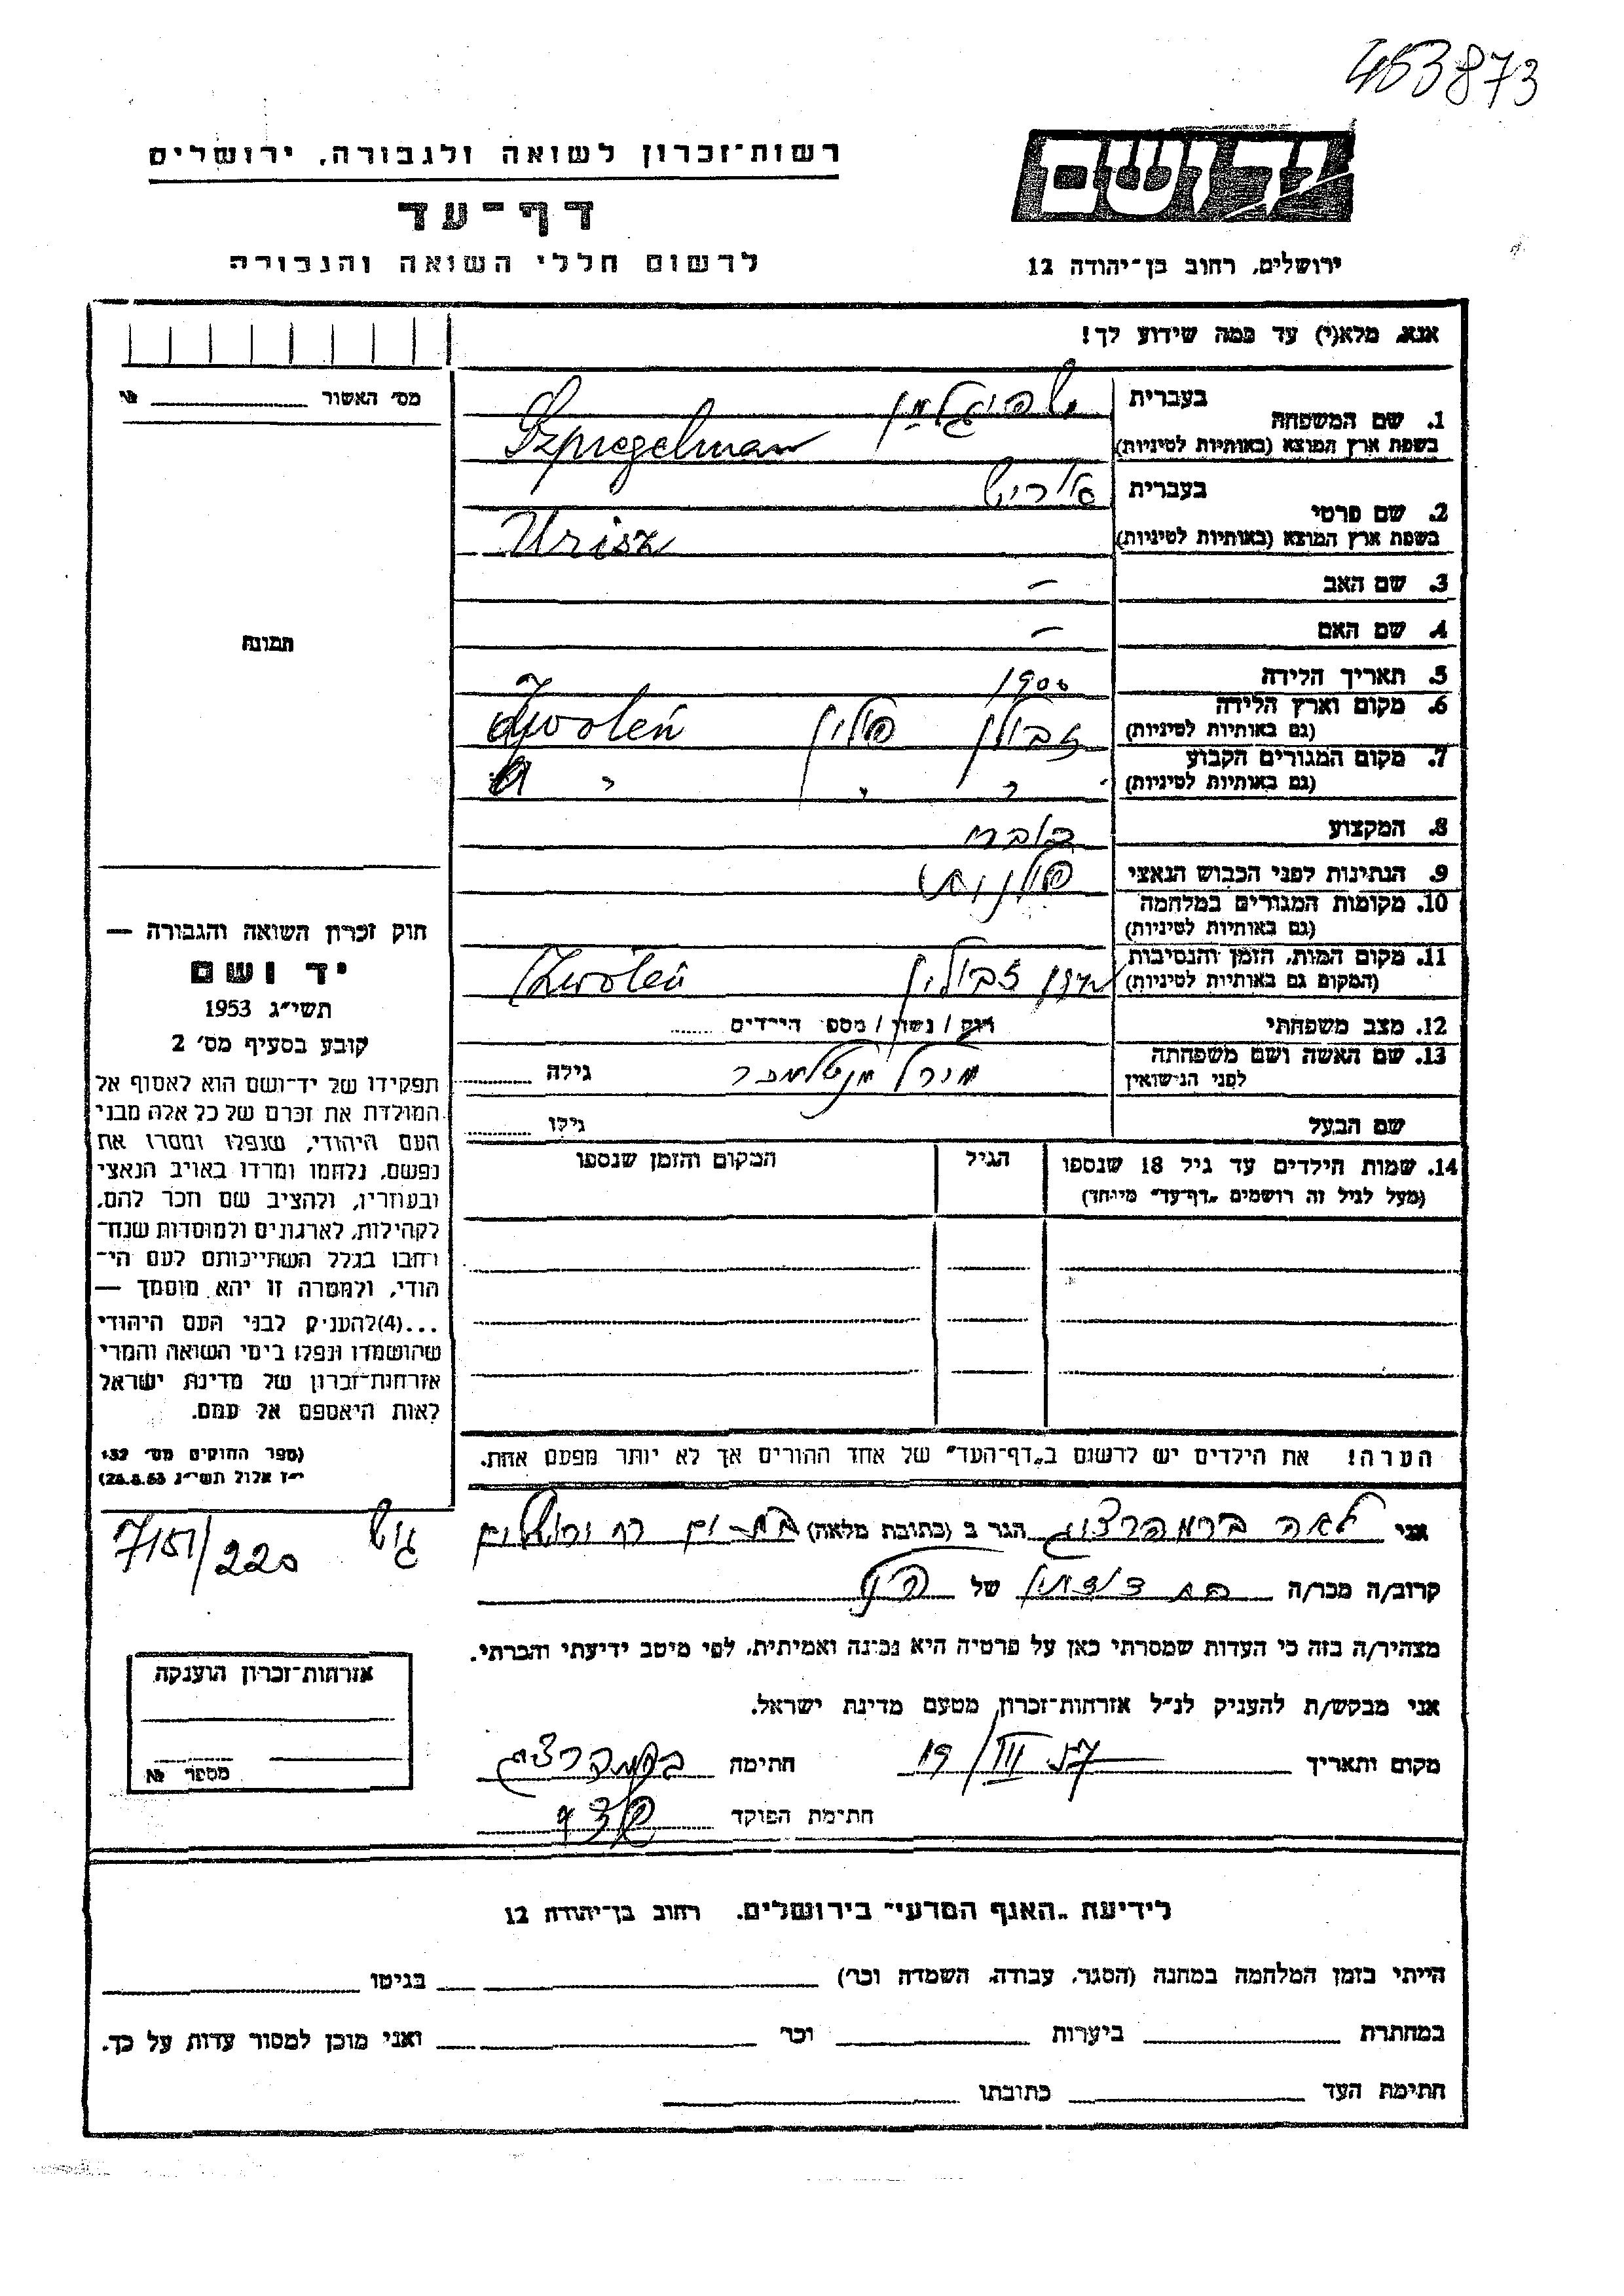 453873
יד ושם
רשות-זכרון לשואה ולגבורה, ירושלים
דף-עד
לרשום חללי השואה והגבורה
ירושלים, רחוב בן-יהודה 12
אנא, מלא(י) עד כמה שידוע לך!
מס׳ האשור № 
1. שם המשפחה בעברית שפיגלמן
בשפת ארץ המוצא (באותיות לטיניות) Szpiegelman
2. שם פרטי בעברית אוריש
בשפת ארץ המוצא (באותיות לטיניות) Urisz
3. שם האב –
4. שם האם –
5. תאריך הלידה 1900
6. מקום וארץ הלידה (גם באותיות לטיניות) זבולן פולין Zwoleń
7. מקום המגורים הקבוע (גם באותיות לטיניות) " " "
8. המקצוע
9. הנתינות לפני הכבוש הנאצי פולנית
10. מקומות המגורים במלחמה (גם באותיות לטיניות)
11. מקום המות, הזמן והנסיבות (המקום גם באותיות לטיניות) זבולין Zwoleń
12. מצב משפחתי רוק / נשוי / מספר הילדים
13. שם האשה ושם משפחתה לפני הנישואין גילה
שם הבעל גילו
14. שמות הילדים עד גיל 18 שנספו הגיל המקום והזמן שנספו
(מעל לגיל זה רושמים „דף-עד" מיוחד)
הערה! את הילדים יש לרשום ב„דף-העד" של אחד ההורים אך לא יותר מפעם אחת.
תמונה
חוק זכרון השואה והגבורה —
יד ושם
תשי״ג 1953
קובע בסעיף מס׳ 2
תפקידו של יד-ושם הוא לאסוף אל
המולדת את זכרם של כל אלה מבני
העם היהודי, שנפלו ומסרו את
נפשם, נלחמו ומרדו באויב הנאצי
ובעוזריו, ולהציב שם וזכר להם,
לקהילות, לארגונים ולמוסדות שנח-
רבו בגלל השתייכותם לעם הי-
הודי, ולמטרה זו יהא מוסמך —
...(4)להעניק לבני העם היהודי
שהושמדו ונפלו בימי השואה והמרי
אזרחות-זכרון של מדינת ישראל
לאות היאספם אל עמם.
(ספר החוקים מס׳ 132
י״ז אלול תשי״ג 28.8.53)
7151/220 גוש
אני לאה ברמהרצוג הגר ב (כתובת מלאה) בת-ים
קרוב/ה מכר/ה בת דודתו של הנ״ל
מצהיר/ה בזה כי העדות שמסרתי כאן על פרטיה היא נכונה ואמיתית, לפי מיטב ידיעתי והכרתי.
אני מבקש/ת להעניק לנ״ל אזרחות-זכרון מטעם מדינת ישראל.
מקום ותאריך 19/III 57 חתימה ברמהרצוג
חתימת הפוקד
אזרחות-זכרון הוענקה
מספר №
לידיעת „האגף המדעי" בירושלים, רחוב בן-יהודה 12
הייתי בזמן המלחמה במחנה (הסגר, עבודה, השמדה וכו׳) בגיטו
במחתרת ביערות וכו׳ ואני מוכן למסור עדות על כך.
חתימת העד כתובתו